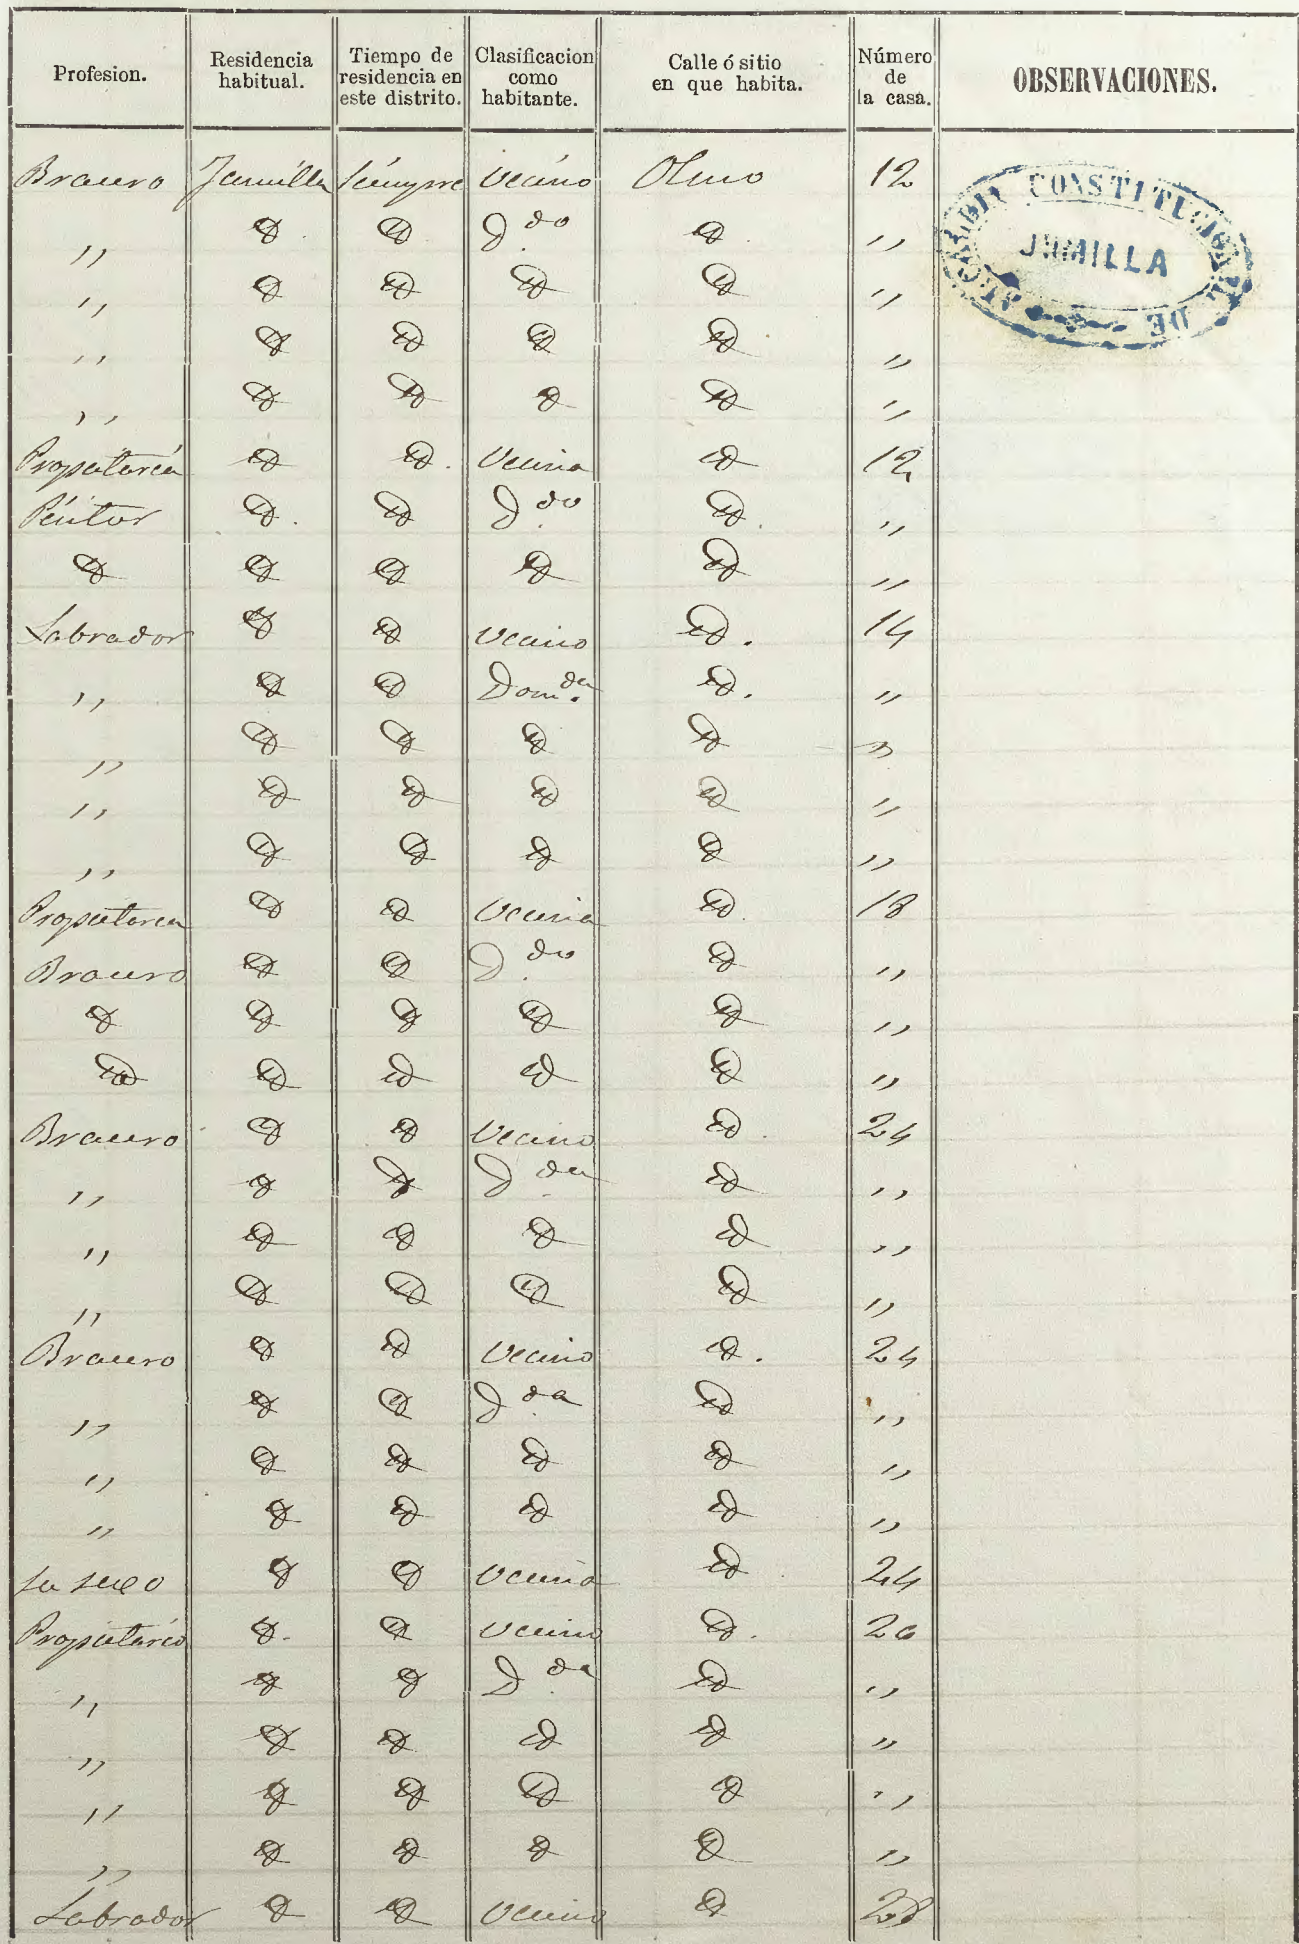 Profesion. Residencia habitual. Tiempo de residencia en este distrito. Clasificacion como habitante. Calle ó sitio en que habita. Número de la casa. OBSERVACIONES.
ALCALDIA CONSTITUCIONAL DE JUMILLA
Bracero Jumilla siempre vecino Olmo 12
,, id id Ddo id ,,
,, id id id id ,,
,, id id id id ,,
,, id id id id ,,
Propietaria id id. Vecina id 12
id. id Ddo id. ,,
id id id id id ,,
Labrador id id vecino id. 14
,, id id Domda. id. ,,
,, id id id id ,,
,, id id id id ,,
,, id id id id ,,
Propietaria id id Vecina id. 18
Bracero id id Ddo id ,,
id id id id id ,,
id id id id id ,,
Bracero id id Vecino id. 24
,, id id Dda id ,,
,, id id id id ,,
,, id id id id ,,
Bracero id id Vecino id. 24
,, id id Dda id ,,
,, id id id id ,,
,, id id id id ,,
su sexo id id Vecina id 24
Propietario id. id vecino id. 26
,, id id Dda id ,,
,, id id id id ,,
,, id id id id ,,
,, id id id id ,,
Labrador id id Vecino id 28